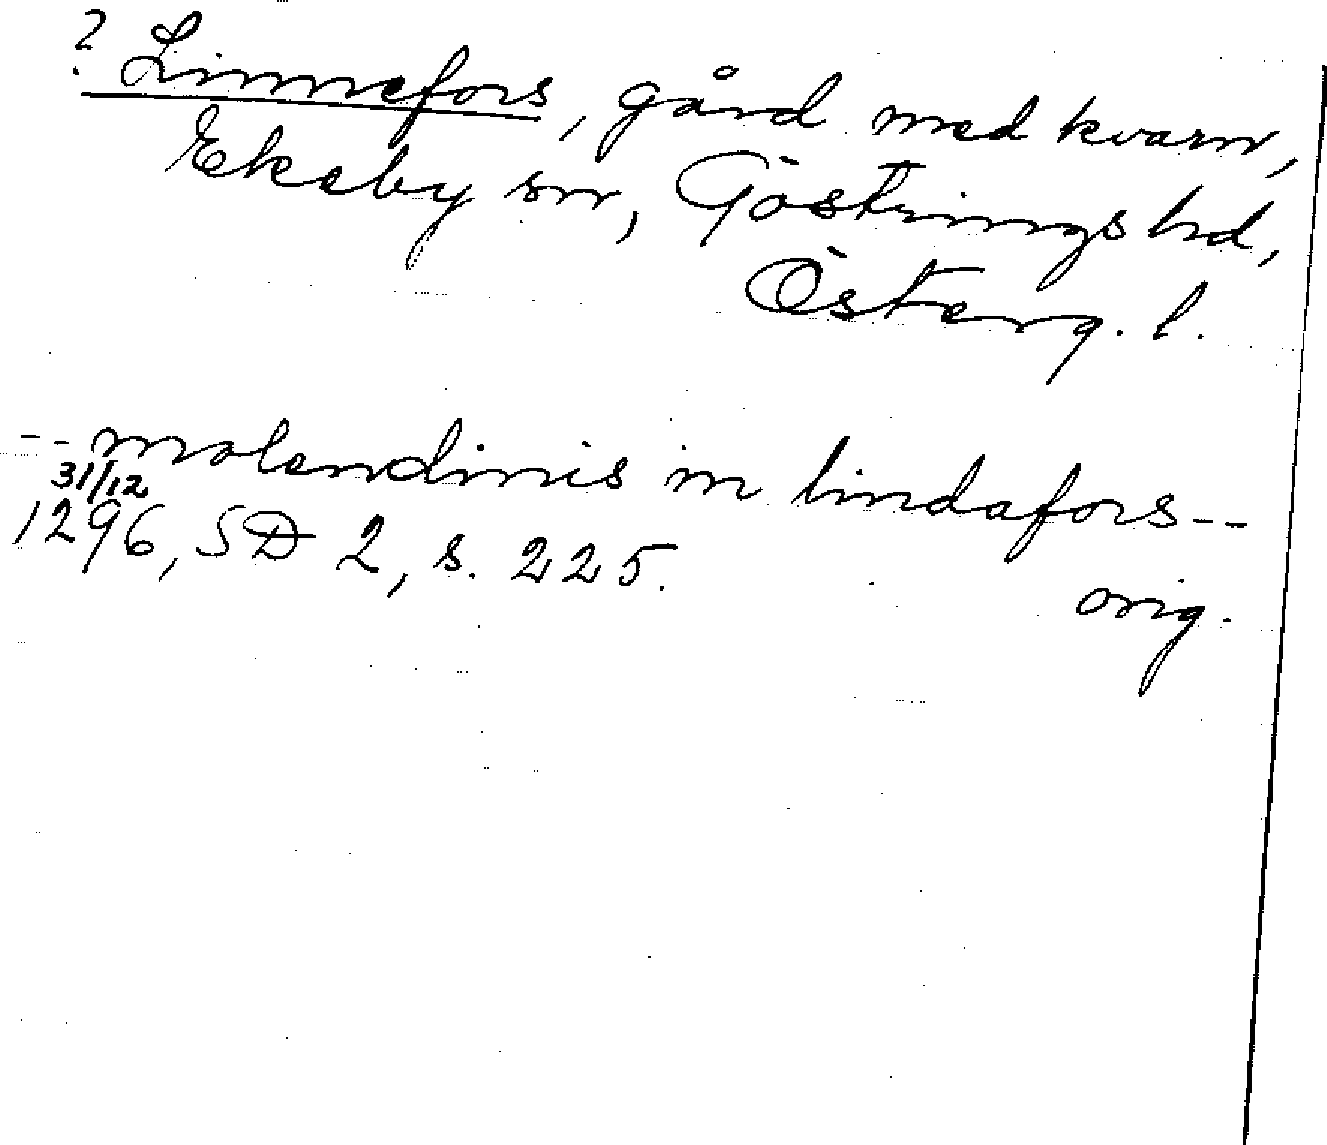 ? Linnefors, gård med kvarn,
Ekeby sn, Göstrings hd,
Österg. l.
-- molendinis in lindafors --
31/12
1296, SD 2, s. 225.
orig.